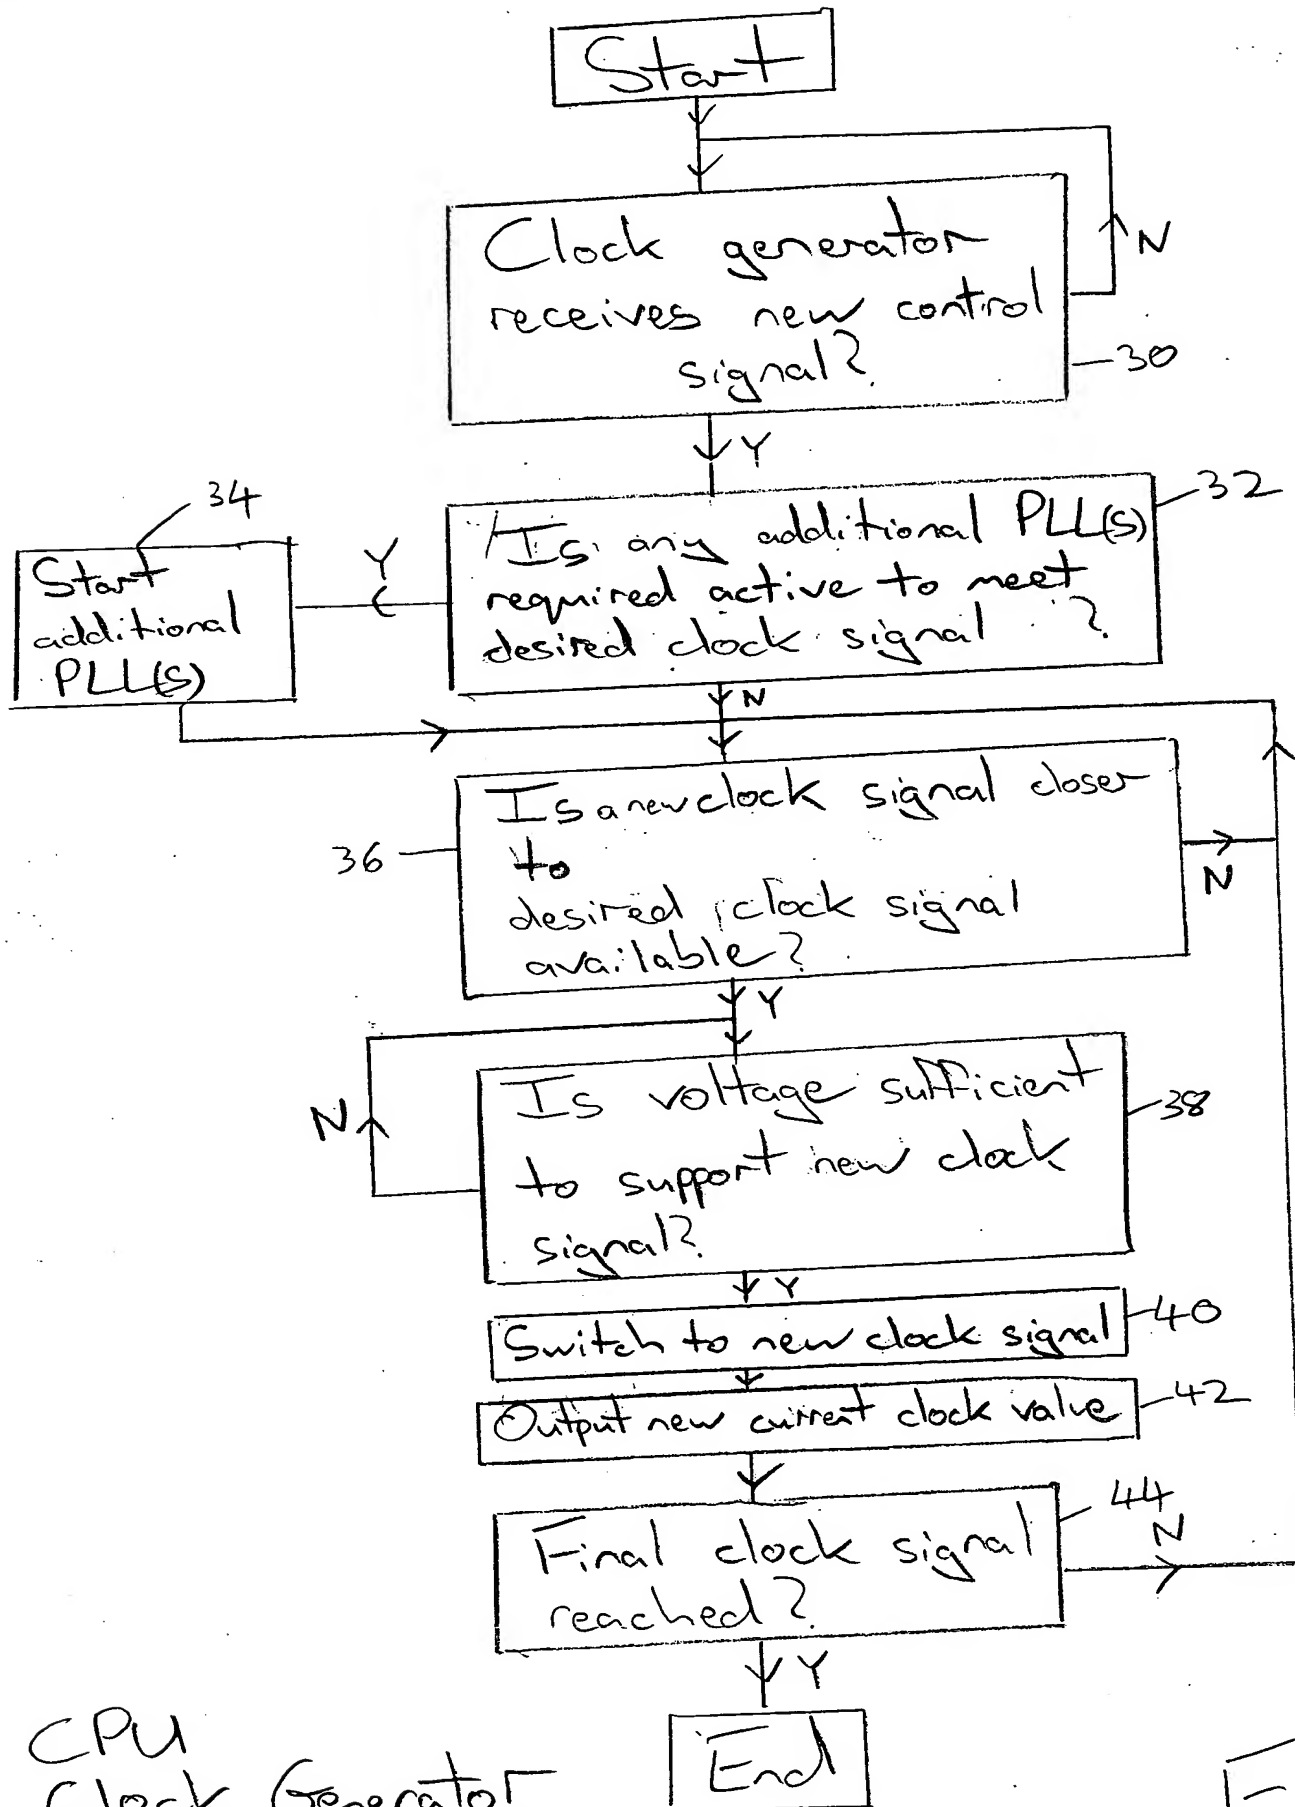 Start
Clock generator
receives new control
signal?
N
30
Y
32
Is any additional PLL(s)
required active to meet
desired clock signal ?
34
Y
Start
additional
PLL(s)
N
Is a new clock signal closer
to
desired clock signal
available?
36
N
Y
Is voltage sufficient
to support new clock
signal?
38
N
Y
Switch to new clock signal
40
Output new current clock value
42
Final clock signal
reached?
44
N
Y
End
CPU
Clock Generator